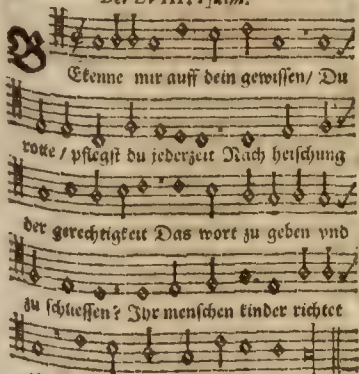 Der LVIII. Psalm.
BEkenne mir auff dein gewissen/ Du
rotte / pflegst du jederzeit Nach heischung
der gerechtigkeit Das wort zu geben vnd
zu schliessen? Ihr menschen kinder richtet